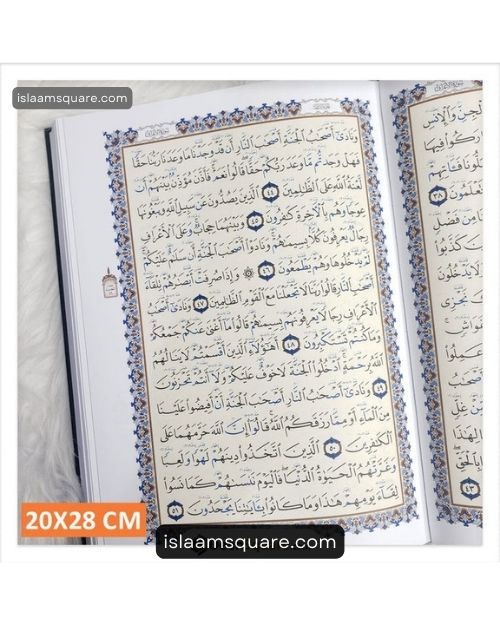 islaamsquare.com
وَنَادَىٰٓ أَصْحَٰبُ ٱلْجَنَّةِ أَصْحَٰبَ ٱلنَّارِ أَن قَدْ وَجَدْنَا مَا وَعَدَنَا رَبُّنَا حَقًّا
فَهَلْ وَجَدتُّم مَّا وَعَدَ رَبُّكُمْ حَقًّا قَالُوا۟ نَعَمْ فَأَذَّنَ مُؤَذِّنٌۢ بَيْنَهُمْ أَن
لَّعْنَةُ ٱللَّهِ عَلَى ٱلظَّٰلِمِينَ ٤٤ ٱلَّذِينَ يَصُدُّونَ عَن سَبِيلِ ٱللَّهِ وَيَبْغُونَهَا
عِوَجًا وَهُم بِٱلْءَاخِرَةِ كَٰفِرُونَ ٤٥ وَبَيْنَهُمَا حِجَابٌ وَعَلَى ٱلْأَعْرَافِ
رِجَالٌ يَعْرِفُونَ كُلًّۢا بِسِيمَىٰهُمْ وَنَادَوْا۟ أَصْحَٰبَ ٱلْجَنَّةِ أَن سَلَٰمٌ عَلَيْكُمْ
لَمْ يَدْخُلُوهَا وَهُمْ يَطْمَعُونَ ٤٦ ۞ وَإِذَا صُرِفَتْ أَبْصَٰرُهُمْ تِلْقَآءَ
أَصْحَٰبِ ٱلنَّارِ قَالُوا۟ رَبَّنَا لَا تَجْعَلْنَا مَعَ ٱلْقَوْمِ ٱلظَّٰلِمِينَ ٤٧ وَنَادَىٰٓ أَصْحَٰبُ
ٱلْأَعْرَافِ رِجَالًا يَعْرِفُونَهُم بِسِيمَىٰهُمْ قَالُوا۟ مَآ أَغْنَىٰ عَنكُمْ جَمْعُكُمْ
وَمَا كُنتُمْ تَسْتَكْبِرُونَ ٤٨ أَهَٰٓؤُلَآءِ ٱلَّذِينَ أَقْسَمْتُمْ لَا يَنَالُهُمُ
ٱللَّهُ بِرَحْمَةٍ ٱدْخُلُوا۟ ٱلْجَنَّةَ لَا خَوْفٌ عَلَيْكُمْ وَلَآ أَنتُمْ تَحْزَنُونَ
٤٩ وَنَادَىٰٓ أَصْحَٰبُ ٱلنَّارِ أَصْحَٰبَ ٱلْجَنَّةِ أَنْ أَفِيضُوا۟ عَلَيْنَا
مِنَ ٱلْمَآءِ أَوْ مِمَّا رَزَقَكُمُ ٱللَّهُ قَالُوٓا۟ إِنَّ ٱللَّهَ حَرَّمَهُمَا عَلَى
ٱلْكَٰفِرِينَ ٥٠ ٱلَّذِينَ ٱتَّخَذُوا۟ دِينَهُمْ لَهْوًا وَلَعِبًا
وَغَرَّتْهُمُ ٱلْحَيَوٰةُ ٱلدُّنْيَا فَٱلْيَوْمَ نَنسَىٰهُمْ كَمَا نَسُوا۟
لِقَآءَ يَوْمِهِمْ هَٰذَا وَمَا كَانُوا۟ بِـَٔايَٰتِنَا يَجْحَدُونَ ٥١
20X28 CM
islaamsquare.com